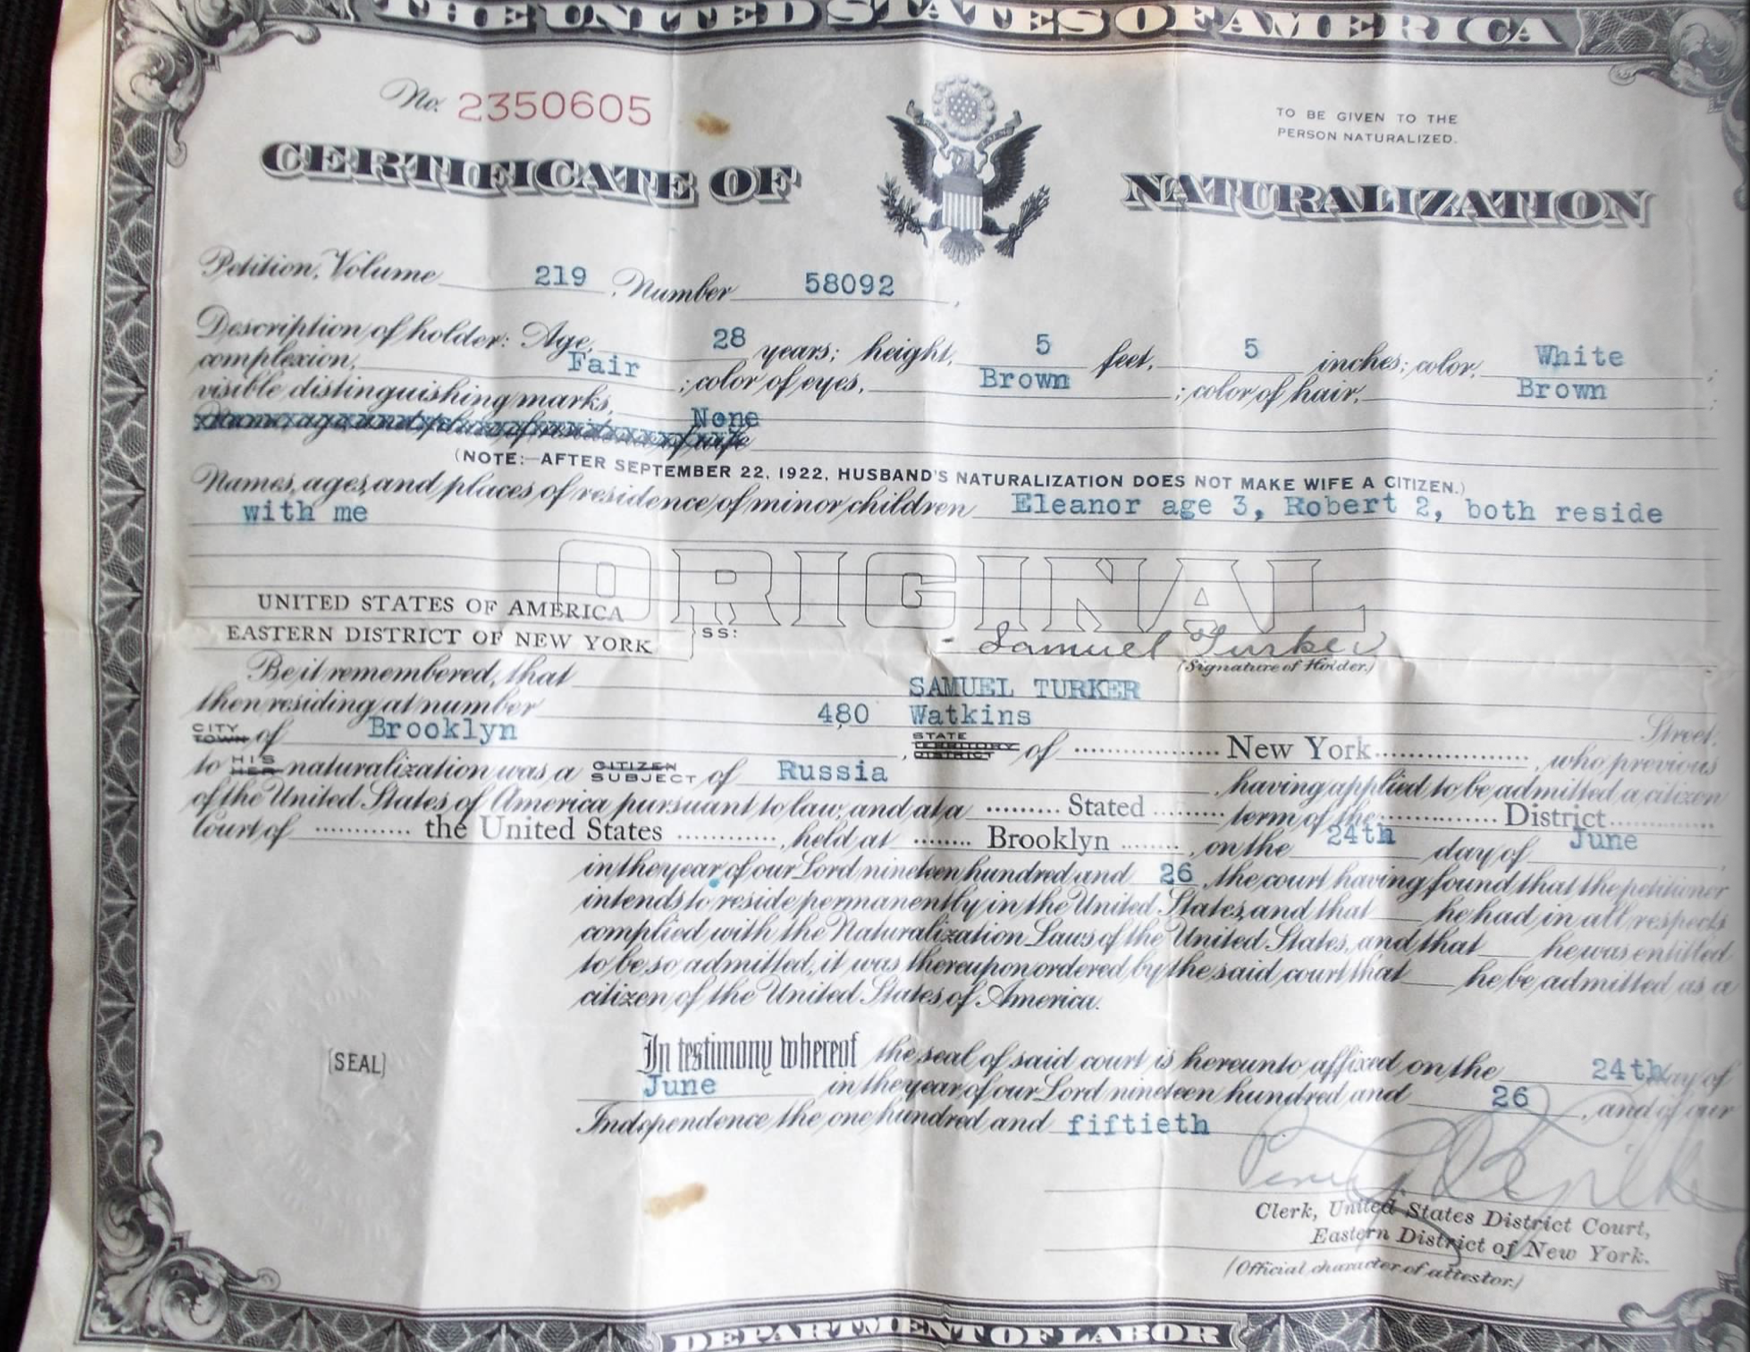 THE UNITED STATES OF AMERICA
No. 2350605
TO BE GIVEN TO THE
PERSON NATURALIZED.
CERTIFICATE OF NATURALIZATION
Petition, Volume 219, Number 58092,
Description of holder: Age, 28 years; height, 5 feet, 5 inches; color, White;
complexion, Fair; color of eyes, Brown; color of hair, Brown;
visible distinguishing marks, None
Name, age and place of residence of wife
(NOTE:—AFTER SEPTEMBER 22, 1922, HUSBAND'S NATURALIZATION DOES NOT MAKE WIFE A CITIZEN.)
Names, ages, and places of residence of minor children Eleanor age 3, Robert 2, both reside
with me
ORIGINAL
UNITED STATES OF AMERICA
EASTERN DISTRICT OF NEW YORK } SS:
Samuel Turker
(Signature of Holder.)
Be it remembered, that SAMUEL TURKER
then residing at number 480 Watkins Street,
CITY TOWN of Brooklyn, STATE TERRITORY DISTRICT of New York, who previous
to HIS HER naturalization was a CITIZEN SUBJECT of Russia, having applied to be admitted a citizen
of the United States of America pursuant to law, and at a Stated term of the District
Court of the United States, held at Brooklyn, on the 24th day of June
in the year of our Lord nineteen hundred and 26, the court having found that the petitioner
intends to reside permanently in the United States, and that he had in all respects
complied with the Naturalization Laws of the United States, and that he was entitled
to be so admitted, it was thereupon ordered by the said court that he be admitted as a
citizen of the United States of America.
In testimony whereof the seal of said court is hereunto affixed on the 24th day of
June in the year of our Lord nineteen hundred and 26, and of our
Independence the one hundred and fiftieth.
[SEAL]
Clerk, United States District Court,
Eastern District of New York.
(Official character of attestor.)
DEPARTMENT OF LABOR